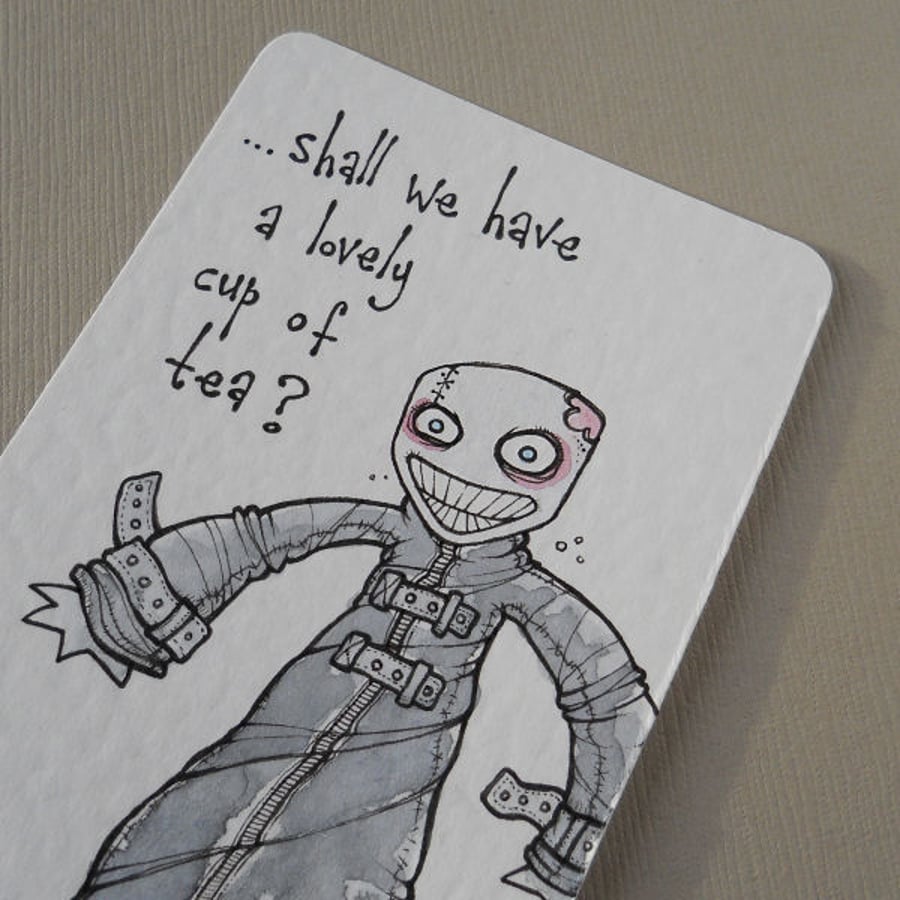 ...shall we have
a lovely
cup of
tea?